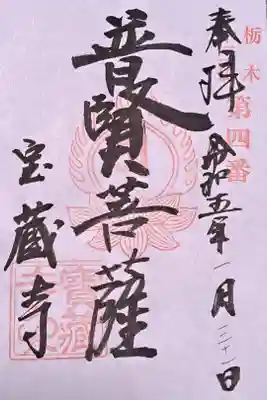 栃木第四番
奉拝 令和五年一月二十一日
普賢菩薩
宝蔵寺